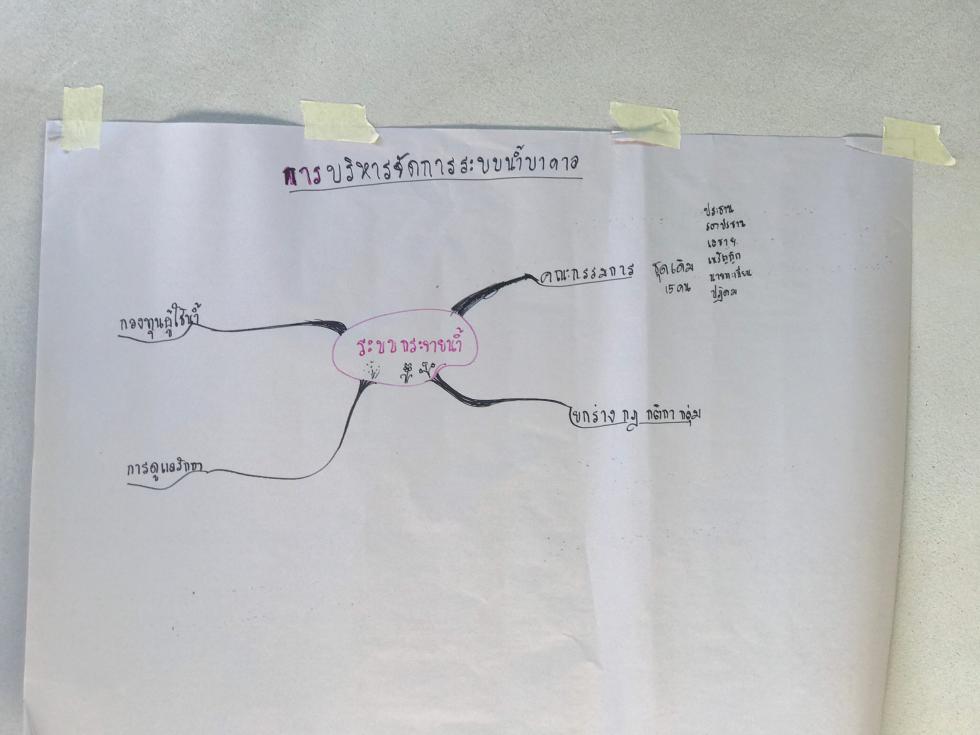 การบริหารจัดการระบบน้ำบาดาล
ระบบกระจายน้ำ
คณะกรรมการ
ชุดเดิม
15 คน
ประธาน
รองประธาน
เลขาฯ
เหรัญญิก
นายทะเบียน
ปฏิคม
ยกร่าง กฎ กติกา กลุ่ม
กองทุนผู้ใช้น้ำ
การดูแลรักษา